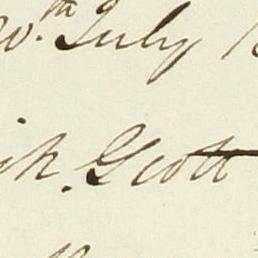 20.th July 1
ih. Scott